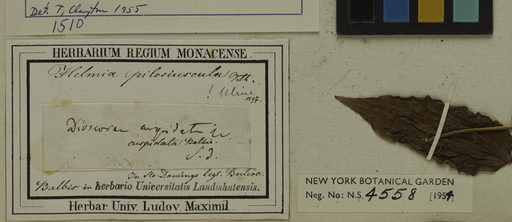 Det. T. Clayton 1955
1510
HERBARIUM REGIUM MONACENSE
Helmia pilosiuscula
! Uline
1897.
Dioscorea
cuspidata Balbis
S. D.
In Sto. Domingo legt. Bertero
Balbis in herbario Universitatis Landishutensis.
Herbar Univ. Ludov. Maximil.
NEW YORK BOTANICAL GARDEN
Neg. No: N.S. 4558 [1954